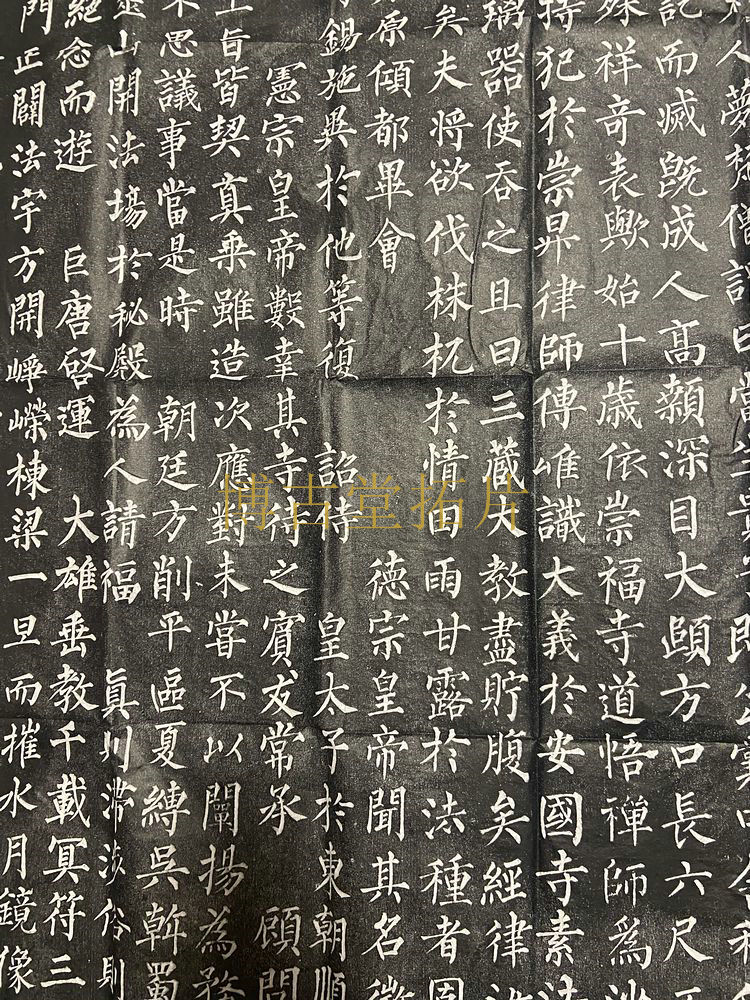 人夢梵僧謂曰當生貴子即出囊中舍利
訖而滅既成人高顙深目大頤方口長六尺五
殊祥奇表歟始十歲依崇福寺道悟禪師為沙
持犯於崇昇律師傳唯識大義於安國寺素法
璃器使吞之且曰三藏大教盡貯腹矣經律
矣夫將欲伐株杌於情田雨甘露於法種者固
原傾都畢會 德宗皇帝聞其名徵
錫施異於他等復 詔侍 皇太子於東朝順
憲宗皇帝數幸其寺待之賓友常承 顧問
上旨皆契真乘雖造次應對未嘗不以闡揚為務
不思議事當是時 朝廷方削平區夏縛吳斡蜀
靈山開法場於秘殿為人請福 真川滯涉俗則
絕念而遊 巨唐啓運 大雄垂教千載冥符三
門正闢法宇方開崢嶸棟梁一旦而摧水月鏡像
博古堂拓片